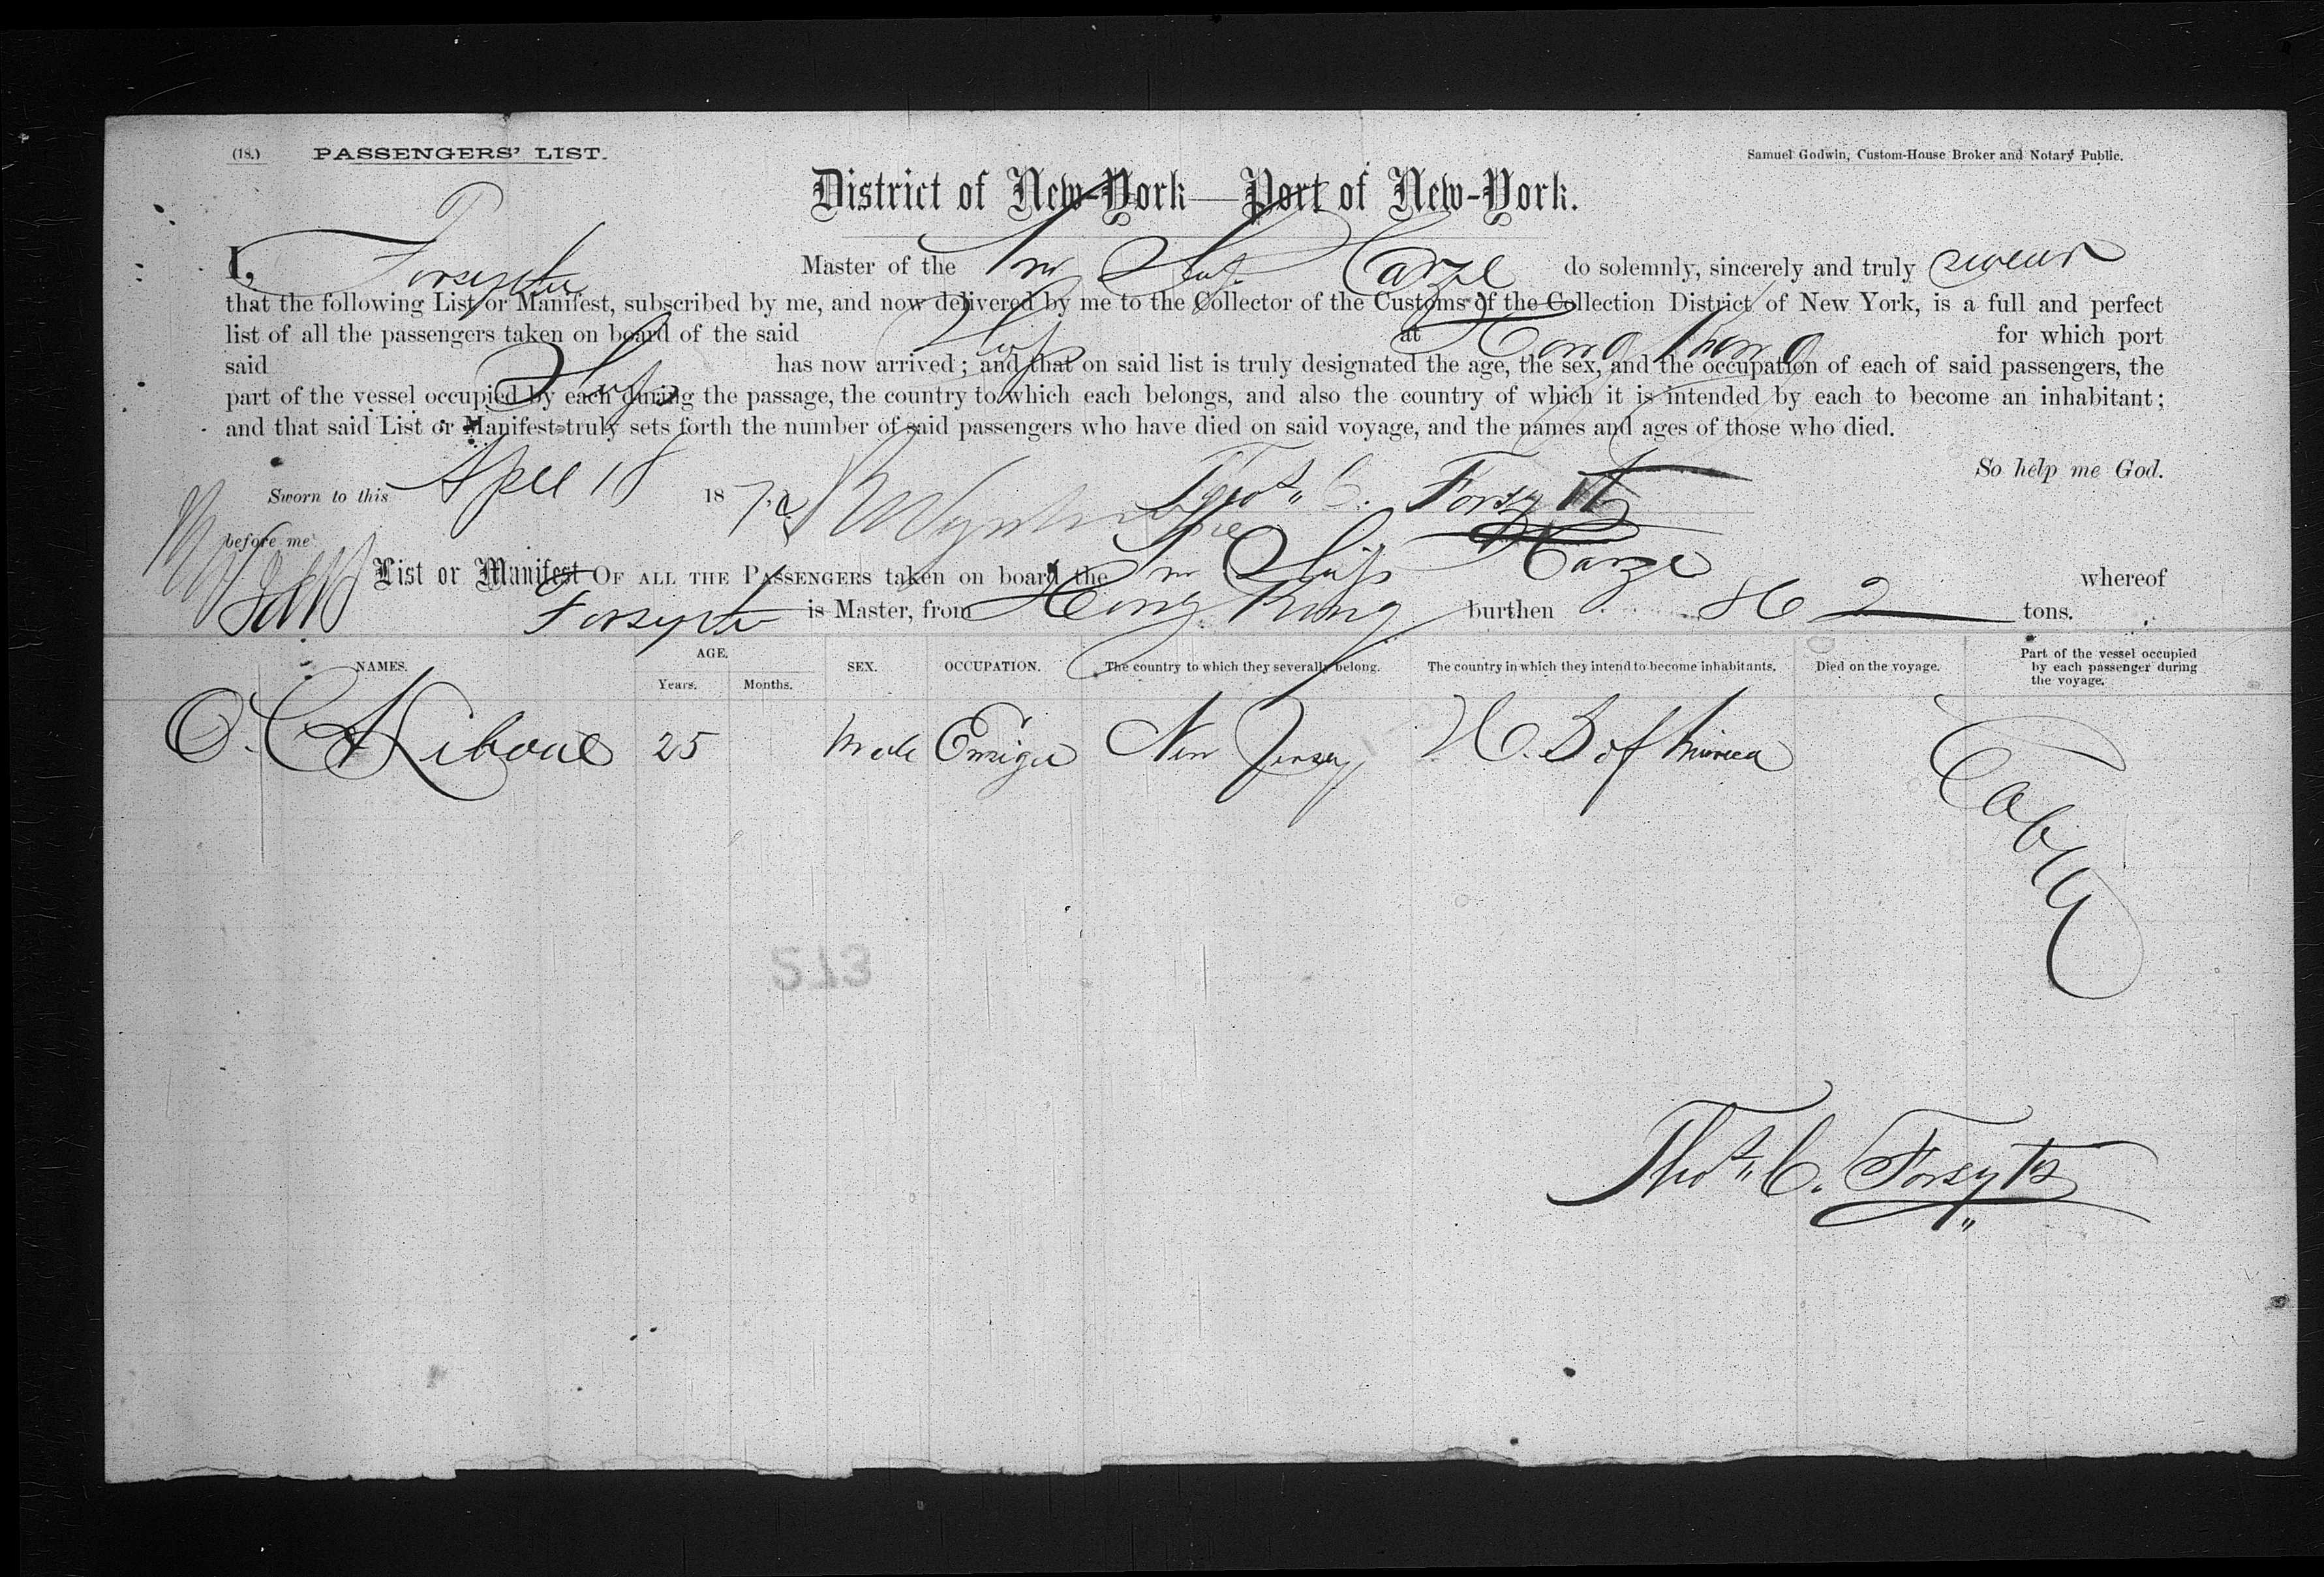 (18.) PASSENGERS' LIST.
Samuel Godwin, Custom-House Broker and Notary Public.
District of New-York—Port of New-York.
I, Forsyth Master of the Ship do solemnly, sincerely and truly swear
that the following List or Manifest, subscribed by me, and now delivered by me to the Collector of the Customs of the Collection District of New York, is a full and perfect
list of all the passengers taken on board of the said Ship at Hong Kong for which port
said Ship has now arrived; and that on said list is truly designated the age, the sex, and the occupation of each of said passengers, the
part of the vessel occupied by each during the passage, the country to which each belongs, and also the country of which it is intended by each to become an inhabitant;
and that said List or Manifest truly sets forth the number of said passengers who have died on said voyage, and the names and ages of those who died.
So help me God.
Sworn to this April 18 187 Thos. C. Forsyth
before me
List or Manifest OF ALL THE PASSENGERS taken on board the Ship whereof
Forsyth is Master, from Hong Kong burthen 862 tons.
NAMES. AGE. SEX. OCCUPATION. The country to which they severally belong. The country in which they intend to become inhabitants. Died on the voyage. Part of the vessel occupied by each passenger during the voyage.
Years. Months.
25 Male New Jersey of America Cabin
513
Thos. C. Forsyth